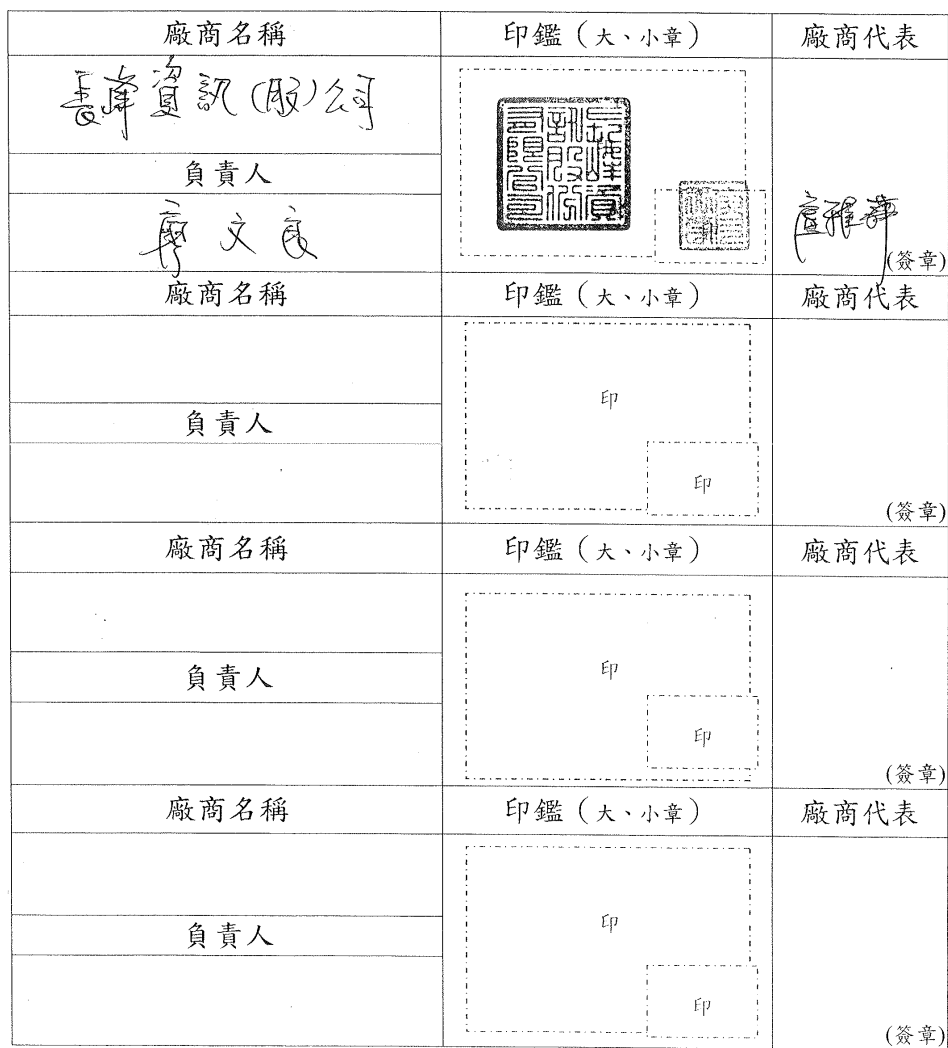 廠商名稱 印鑑（大、小章） 廠商代表
長峯資訊(股)公司
長峰資訊股份有限公司
負責人
廖文良
盧雅
(簽章)
廠商名稱 印鑑（大、小章） 廠商代表
印
負責人
印
(簽章)
廠商名稱 印鑑（大、小章） 廠商代表
印
負責人
印
(簽章)
廠商名稱 印鑑（大、小章） 廠商代表
印
負責人
印
(簽章)